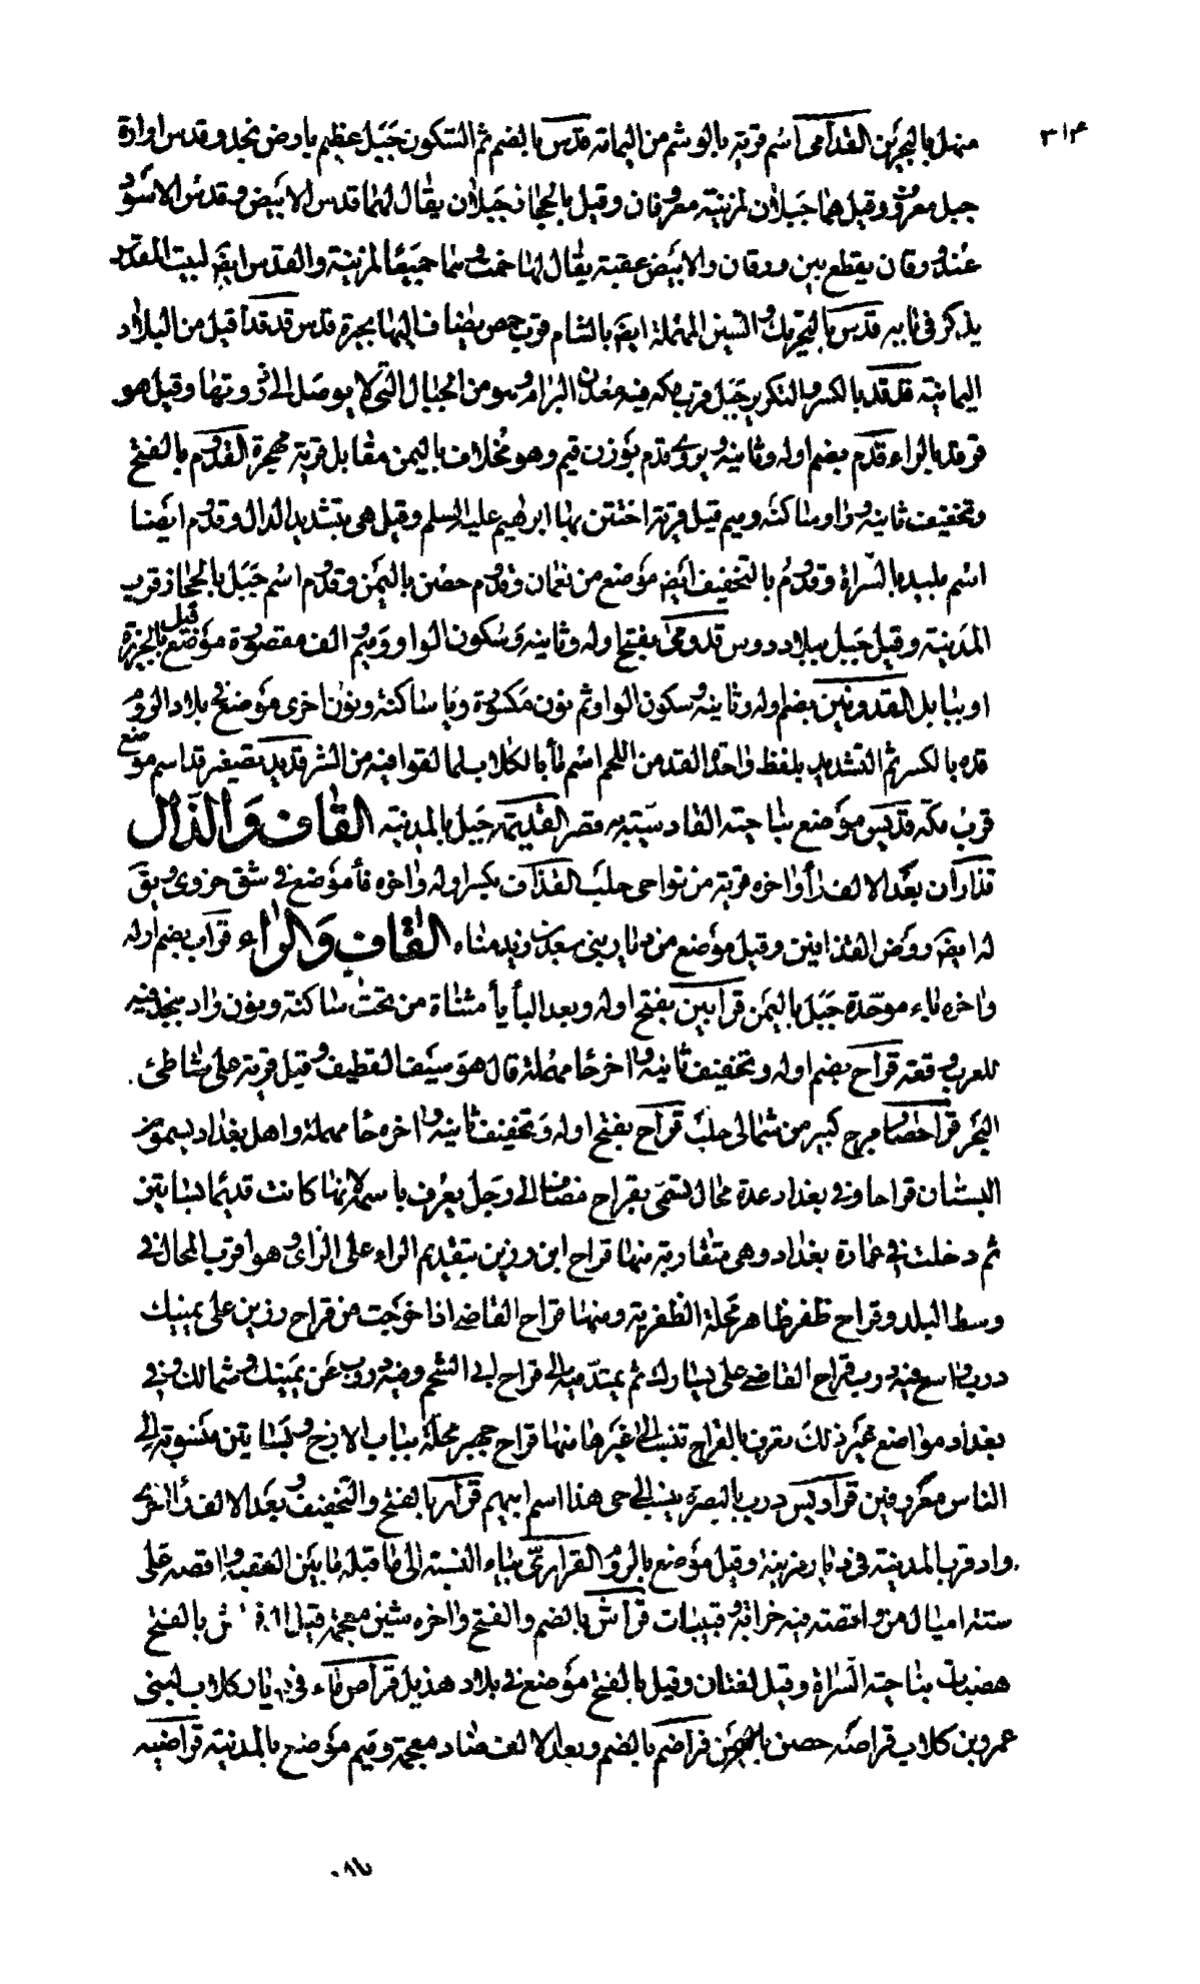 ٣١٣
منهل بالبحرين القدامى اسم قرية بالوشم من اليمامة قدس بالضم ثم السكون جبل عظيم بارض نجد وقدس اوارة
جبل معروف وقيل هما جبلان لمزينة معروفان وقيل بالحجاز جبلان يقال لهما قدس الابيض وقدس الاسود
عند ورقان يقطع بين ورقان والابيض عقبة يقال لها حمت وهما جميعا لمزينة والقدس ايضا لبيت المقدس
يذكر في بابه قدس بالتحريك والسين المهملة ايضا بالشام قرب حمص يضاف اليها بحيرة قدس قدقدا قيل من البلاد
اليمانية قدقد بالكسر والتكرير جبل قرب مكة فيه معدن البرام وهو من الجبال التي لا يوصل الى ذروتها وقيل هو
قرقد بالراء قدم بضم اوله وثانيه ويروى قدم بوزن قيم وهو مخلاف باليمن مقابل قرية مهجرة القدوم بالفتح
وتخفيف ثانيه واو ساكنة وميم قيل قرية اختتن بها ابرهيم عليه السلم وقيل هي بتشديد الدال وقدوم ايضا
اسم بلبيد بالسراة وقدوم بالتخفيف ايضا موضع من نعمان وقدوم حصن باليمن وقدوم اسم جبل بالحجاز قرب
المدينة وقيل جبل ببلاد دوس قدومى بفتح اوله وثانيه وسكون الواو وميم الف مقصورة موضع قيل بالجزيرة
او ببابل القدونين بضم اوله وثانيه وسكون الواو ثم نون مكسورة ويا ساكنة ونون اخرى موضع في بلاد الروم
قده بالكسر ثم التشديد بلفظ واحدة القد من اللحم اسم مأ بالكلاب لما لقوا فيه من الشر قديد تصغير قد اسم موضع
قرب مكة قديس موضع بناحية القادسية به قصر القديمة جبل بالمدينة القاف والذال
قذاران بعد الالف رأ واخره قرية من نواحي حلب القذاف بكسر اوله واخره فأ موضع في شق حزوى ويق
له ايضا روض القذافين وقيل موضع من ديار بني سعد بن زيد مناه القاف والراء قراب بضم اوله
واخره باء موحدة جبل باليمن قرابين بفتح اوله وبعد البأ يأ مثناة من تحت ساكنة ونون واد بنجد فيه
للعرب وقعة قراح بضم اوله وتخفيف ثانيه واخره حا مهملة قال هو سيف القطيف وقيل قرية على شاطئ
البحر قراحصار مرج كبير من شمالى حلب قراح بفتح اوله وتخفيف ثانيه واخره حا مهملة واهل بغداد يسمون
البستان قراحا وفي بغداد عدة محال تسمى بقراح مضاف الى رجل يعرف باسمه لانها كانت قديما بساتين
ثم دخلت في عمارة بغداد وهى متقاربة منها قراح ابن رزين بتقديم الراء على الزاى وهو اقرب المحال في
وسط البلد وقراح ظفر ظاهر محلة الظفرية ومنها قراح القاضى اذا خرجت من قراح رزين على يمينك
درب واسع فيه دروب قراح القاضى على يسارك ثم يمتد فيه الى قراح ابى الشحم وفيه دروب عن يمينك وشمالك وفي
بغداد مواضع غير ذلك تعرف بالقراح تنسب الى غيرها منها قراح جهير محلة بباب الازج وبساتين منسوبة الى
الناس معروفين قراديس درب بالبصرة ينسب الى حى هذا اسم ابيهم قرار بالفتح والتخفيف وبعد الالف رأ اخرى
واد قرب المدينة في ديار مزينة وقيل موضع بالروم القرارى بياء النسبة الى ما قبله ما بين العقبة واقصه على
ستة اميال من واقصة فيه خرابة وقبيبات قراش بالضم والفتح واخره شين معجمة قيل بالفتح
هضبات بناحية السراة وقيل لغتان وقيل بالفتح موضع في بلاد هذيل قراص ماء في ديار كلاب لبنى
عمرو بن كلاب قراصة حصن باليمن قراضم بالضم وبعد الالف ضاد معجمة وميم موضع بالمدينة قراضيه